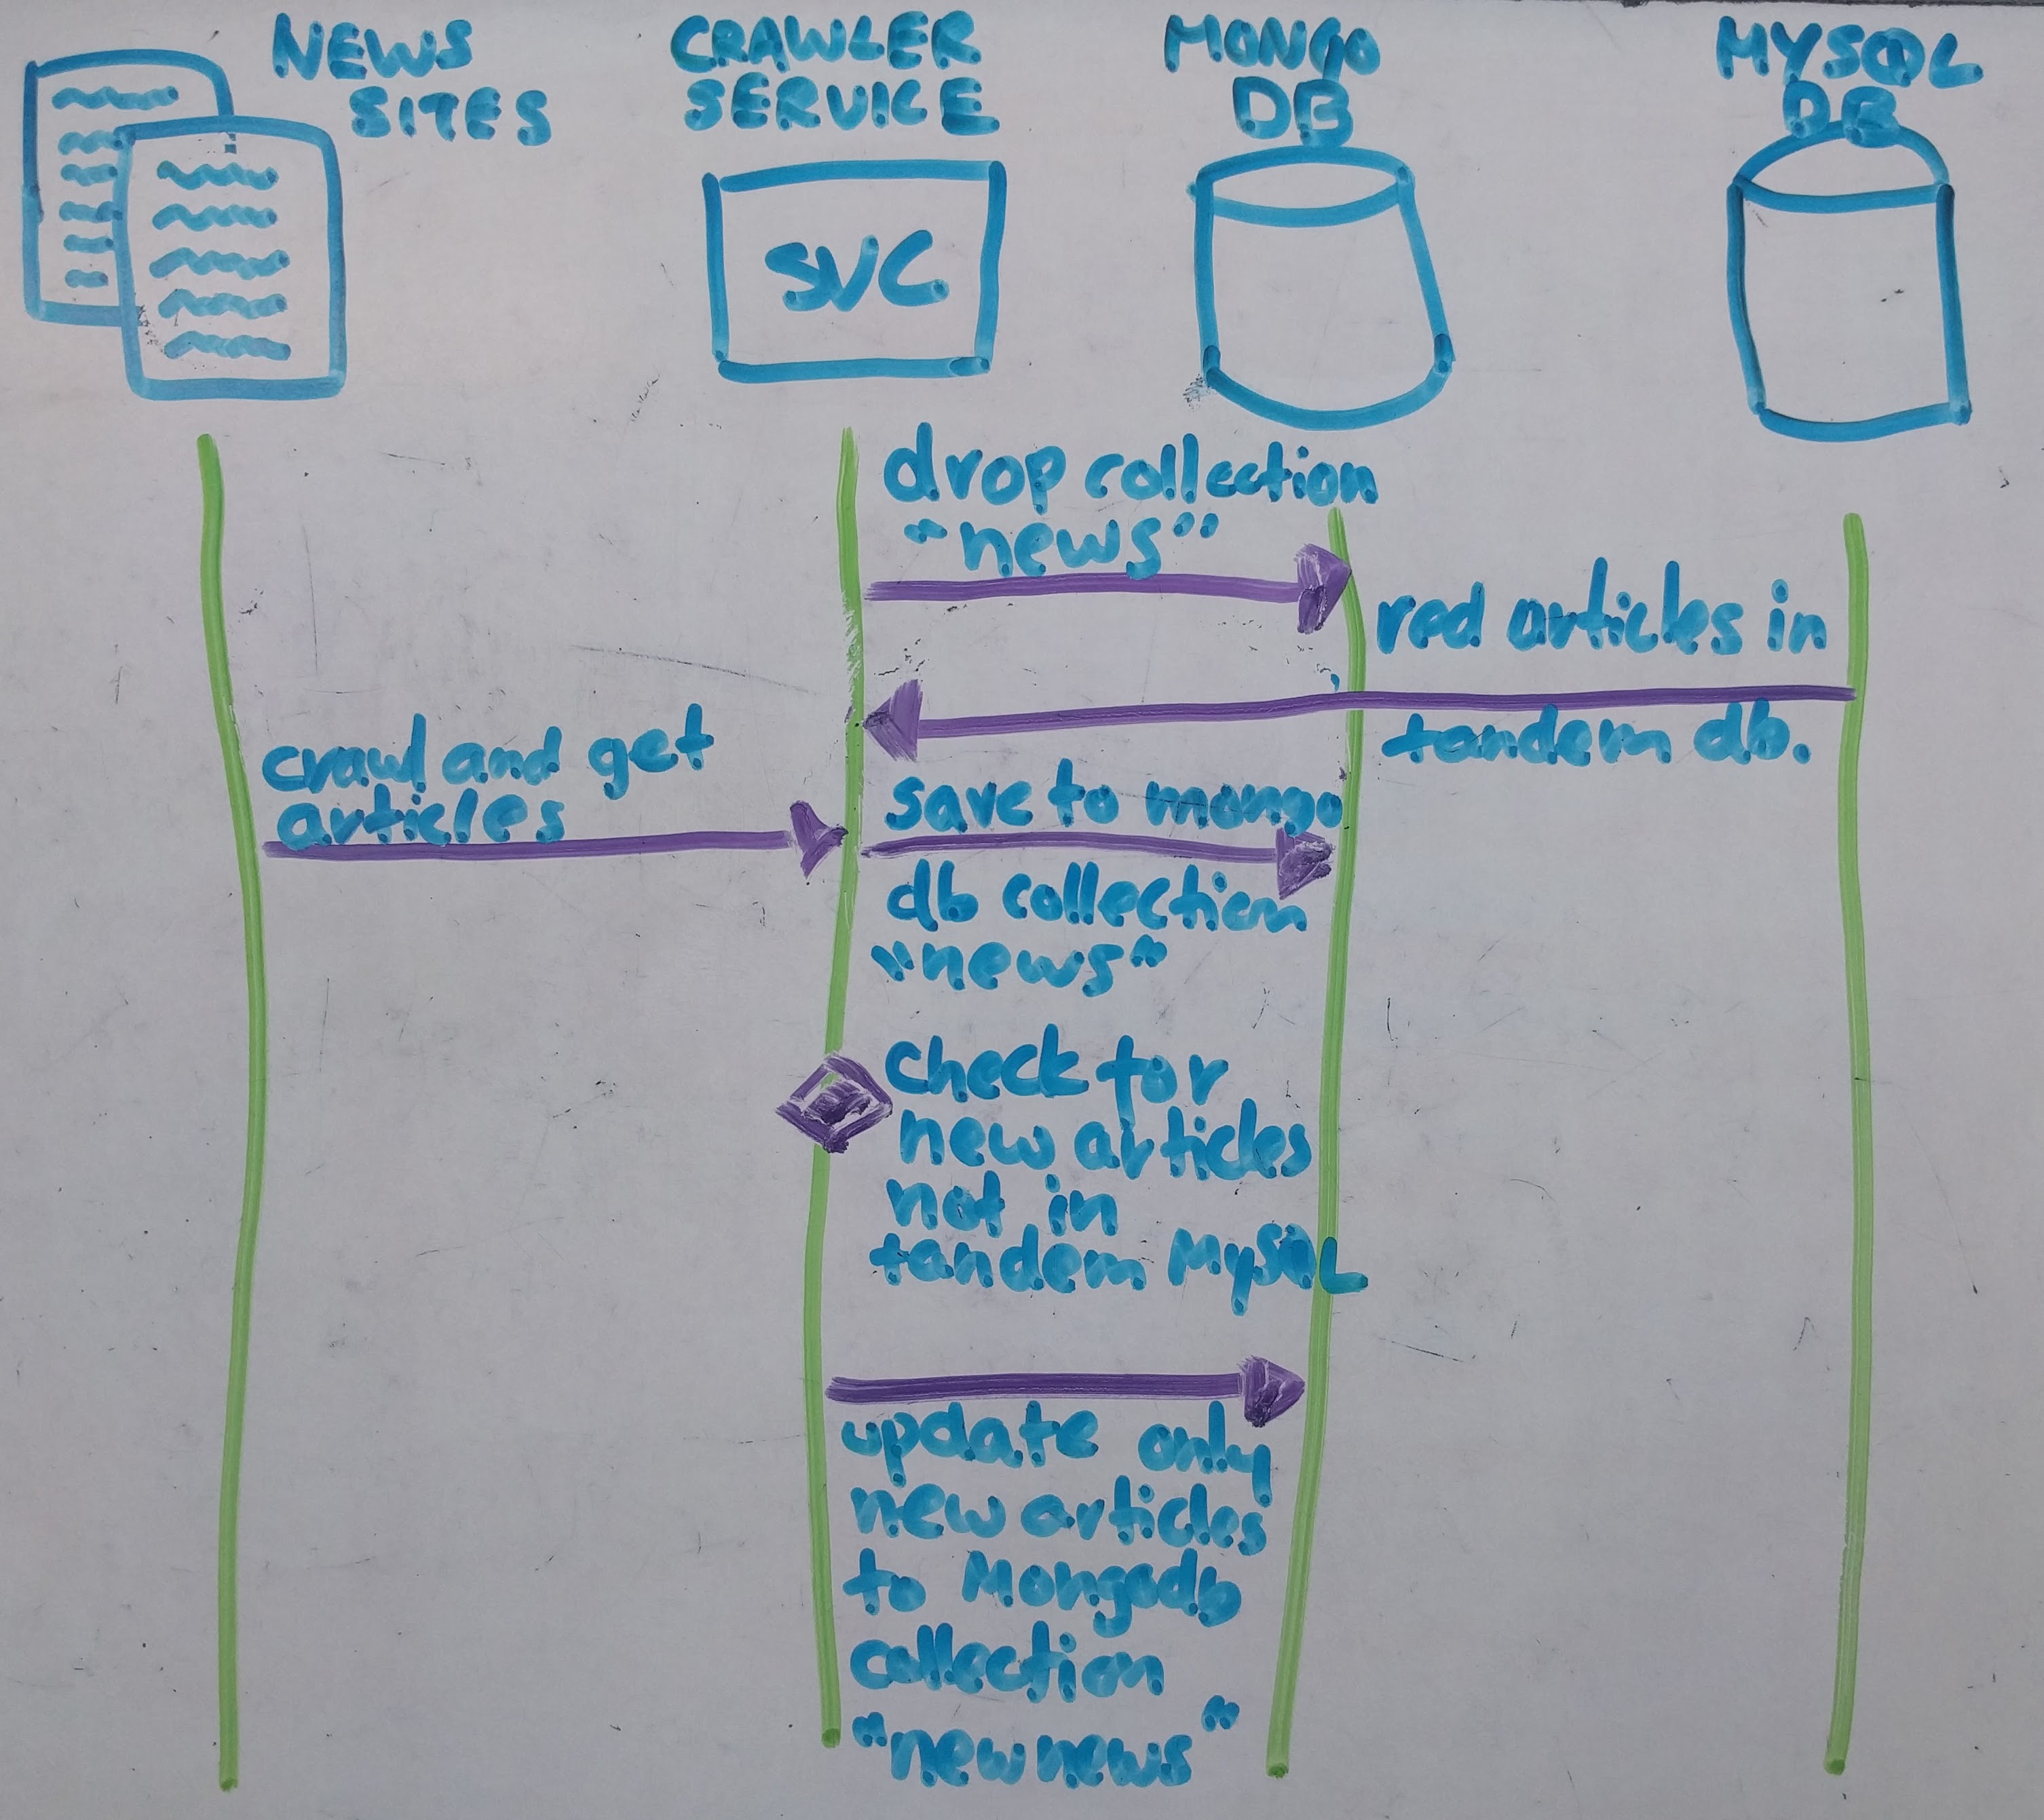 NEWS
SITES
CRAWLER
SERVICE
MONGO
DB
MYSQL
DB
SVC
drop collection
"news"
red articles in
tandem db.
crawl and get
articles
save to mongo
db collection
"news"
check for
new articles
not in
tandem MySQL
update only
new articles
to Mongodb
collection
"newnews"